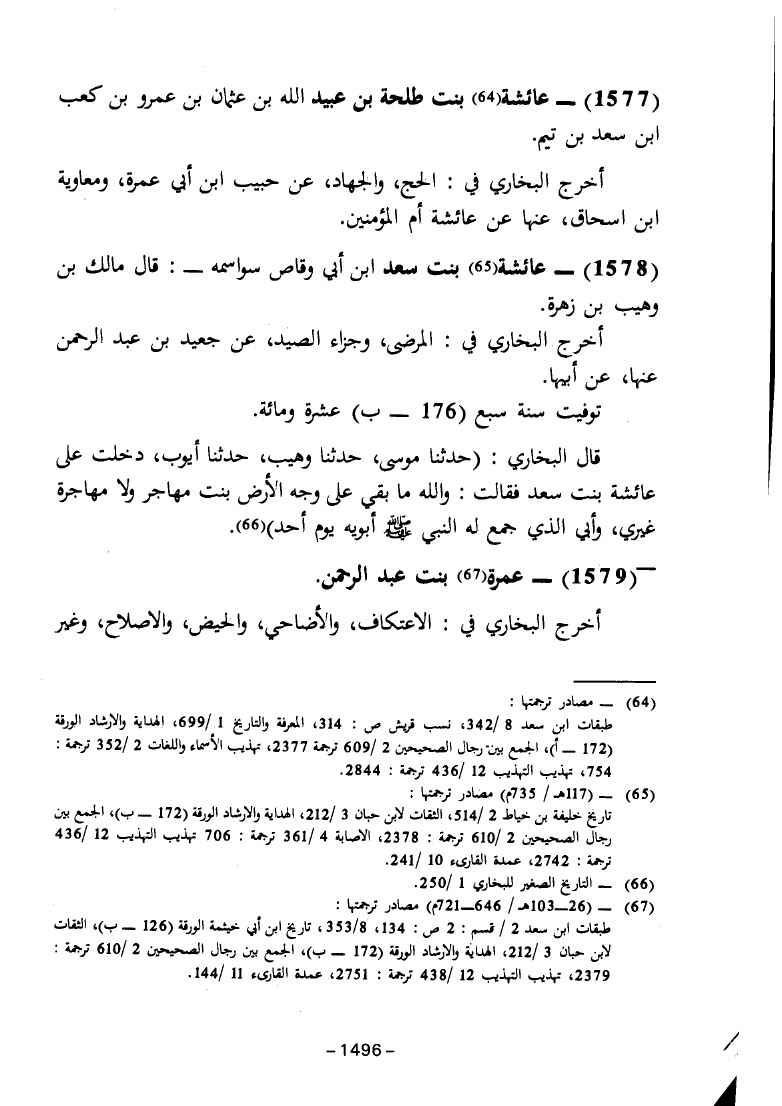 (1577) — عائشة(64) بنت طلحة بن عبيد الله بن عثمان بن عمرو بن كعب
ابن سعد بن تيم.
أخرج البخاري في : الحج، والجهاد، عن حبيب ابن أبي عمرة، ومعاوية
ابن اسحاق، عنها عن عائشة أم المؤمنين.
(1578) — عائشة(65) بنت سعد ابن أبي وقاص سواسمه — : قال مالك بن
وهيب بن زهرة.
أخرج البخاري في : المرضى، وجزاء الصيد، عن جعيد بن عبد الرحمن
عنها، عن أبيها.
توفيت سنة سبع (176 — ب) عشرة ومائة.
قال البخاري : (حدثنا موسى، حدثنا وهيب، حدثنا أيوب، دخلت على
عائشة بنت سعد فقالت : والله ما بقي على وجه الأرض بنت مهاجر ولا مهاجرة
غيري، وأبي الذي جمع له النبي ﷺ أبويه يوم أحد)(66).
(1579) — عمرة(67) بنت عبد الرحمن.
أخرج البخاري في : الاعتكاف، والأضاحي، والحيض، والاصلاح، وغير
(64) — مصادر ترجمتها :
طبقات ابن سعد 8 /342، نسب قريش ص : 314، المعرفة والتاريخ 1 /699، الهداية والارشاد الورقة
(172 — أ)، الجمع بين رجال الصحيحين 2 /609 ترجمة 2377، تهذيب الأسماء واللغات 2 /352 ترجمة :
754، تهذيب التهذيب 12 /436 ترجمة : 2844.
(65) — (117هـ/ 735م) مصادر ترجمتها :
تاريخ خليفة بن خياط 2 /514، الثقات لابن حبان 3 /212، الهداية والارشاد الورقة (172 — ب)، الجمع بين
رجال الصحيحين 2 /610 ترجمة : 2378، الاصابة 4 /361 ترجمة : 706 تهذيب التهذيب 12 /436
ترجمة : 2742، عمدة القارىء 10 /241.
(66) — التاريخ الصغير للبخاري 1 /250.
(67) — (26—103هـ/ 646—721م) مصادر ترجمتها :
طبقات ابن سعد 2 / قسم : 2 ص : 134، 353/8، تاريخ ابن أبي خيثمة الورقة (126 — ب)، الثقات
لابن حبان 3 /212، الهداية والارشاد الورقة (172 — ب)، الجمع بين رجال الصحيحين 2 /610 ترجمة :
2379، تهذيب التهذيب 12 /438 ترجمة : 2751، عمدة القارىء 11 /144.
-1496-